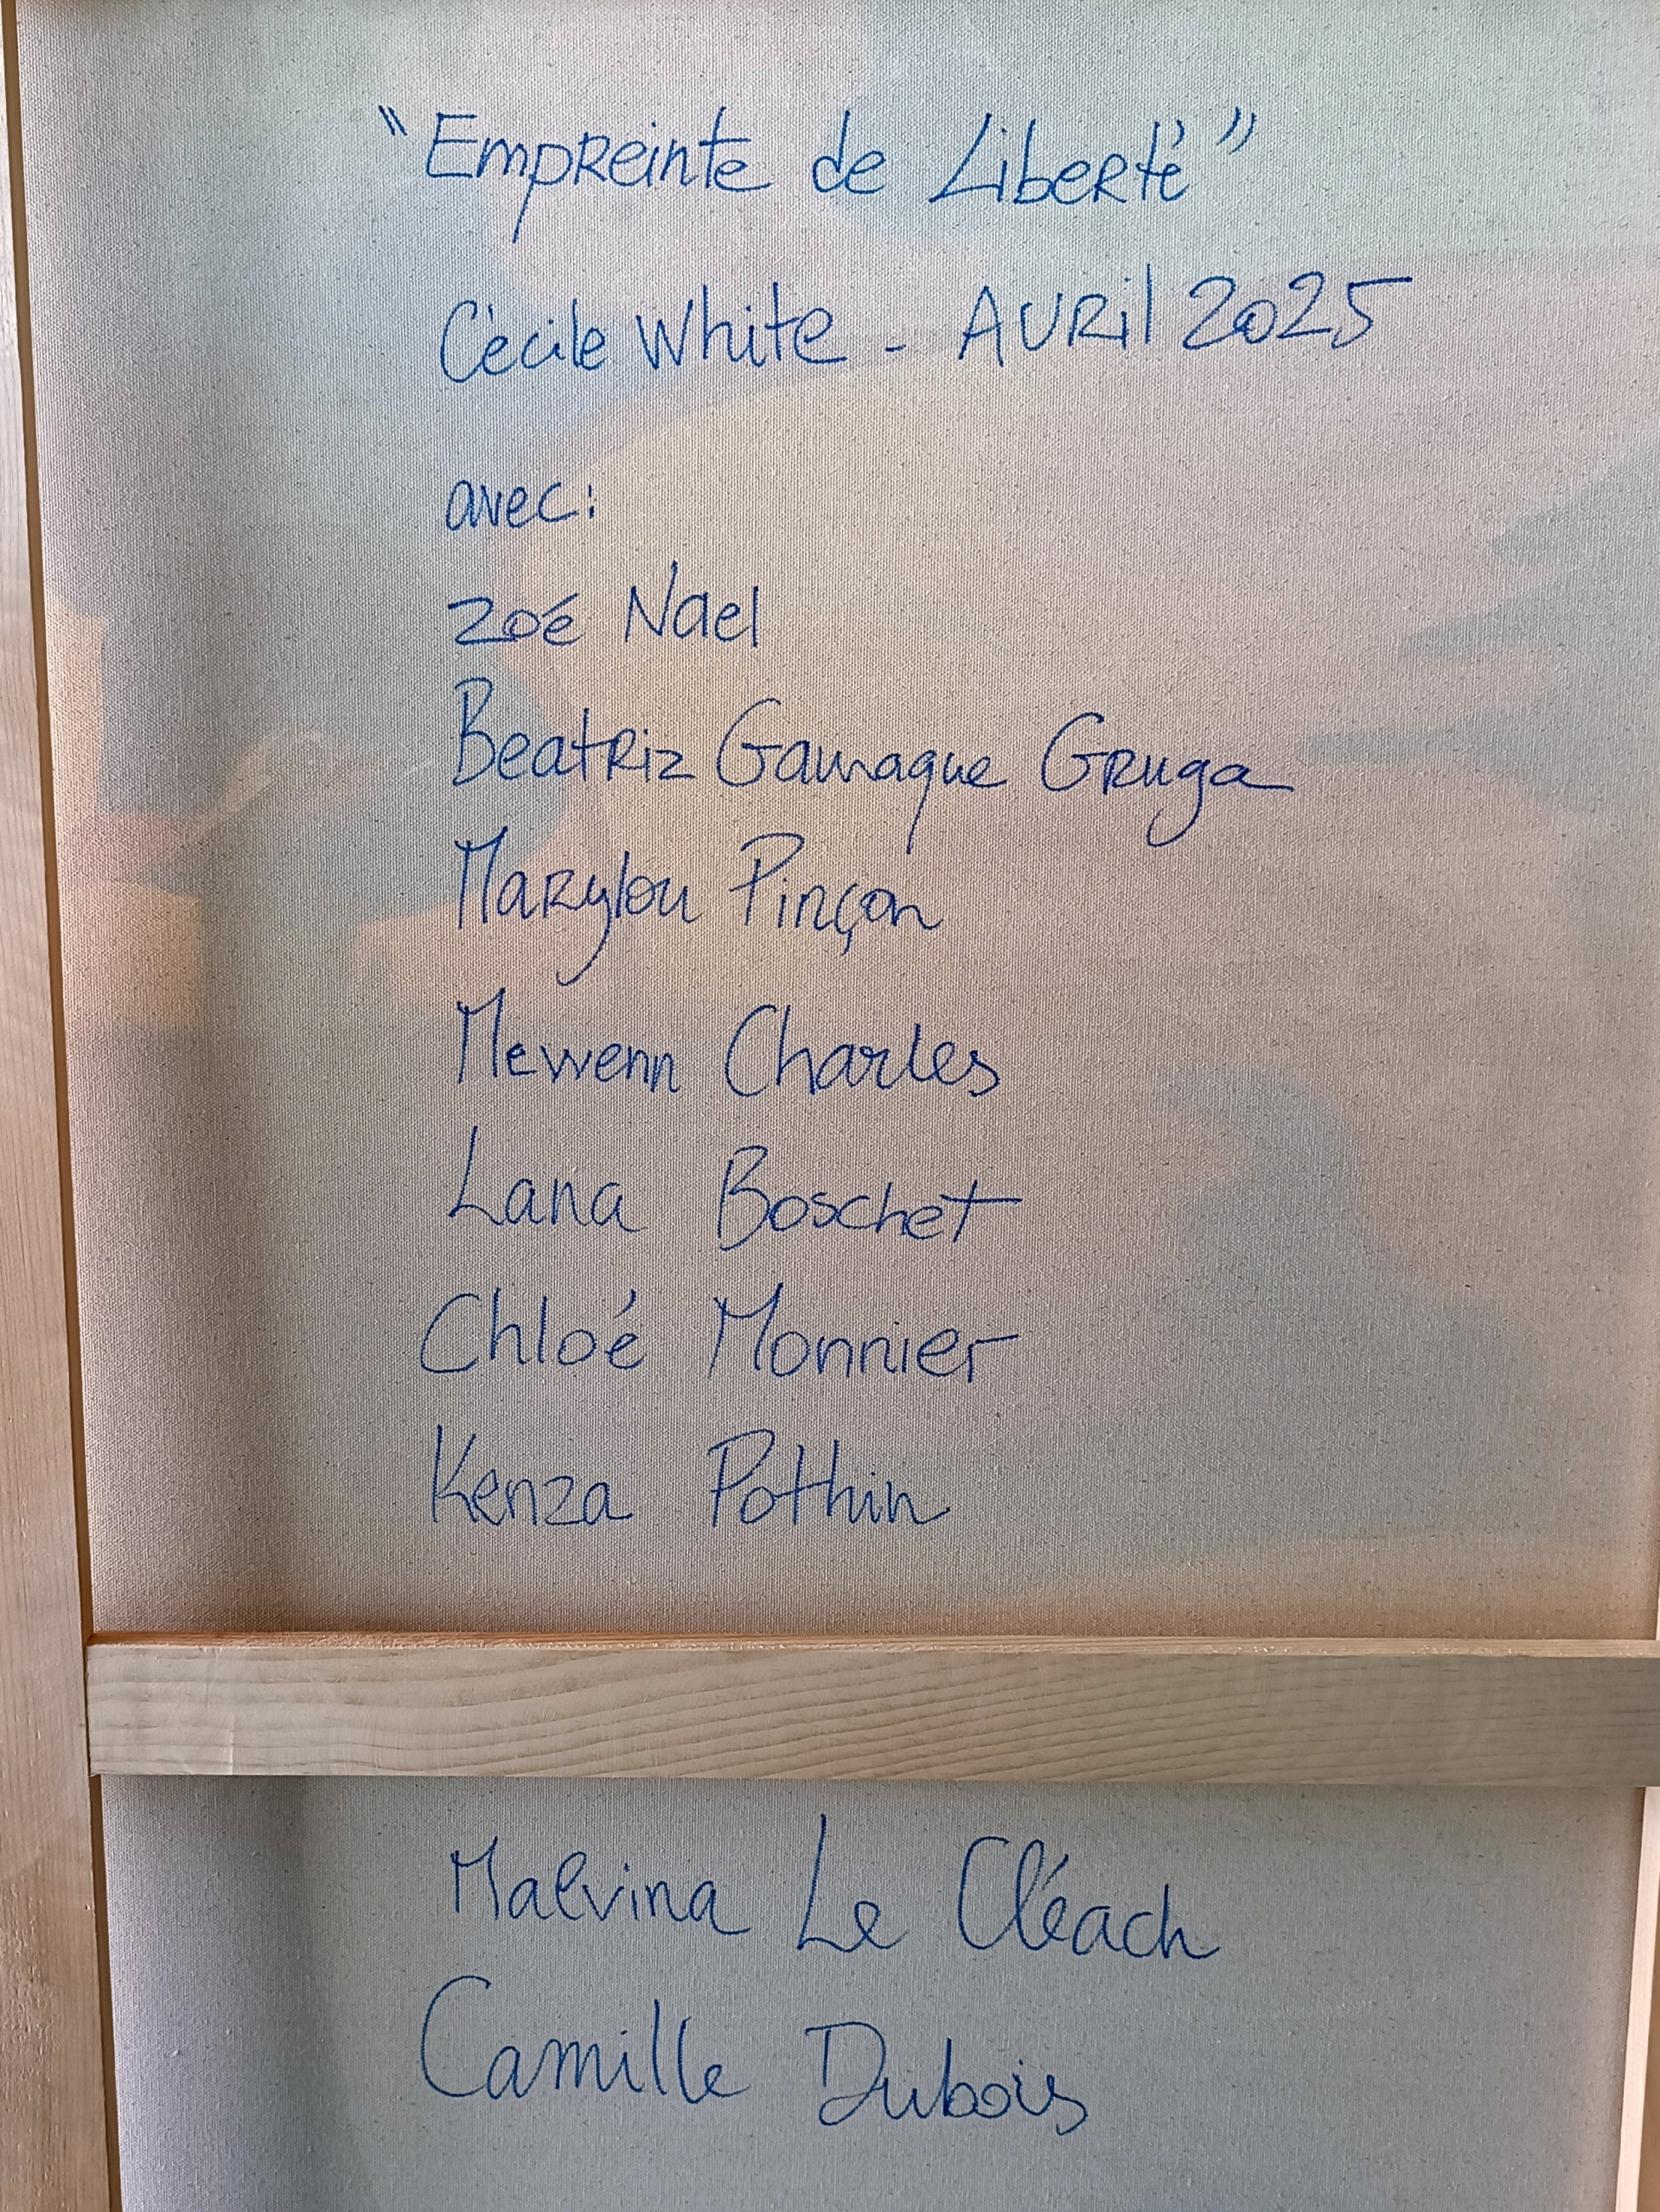 "Empreinte de Liberté"
Cécile White - Avril 2025
avec:
Zoé Nael
Beatriz Gamaque Gruga
Marylou Pinçon
Mewenn Charles
Lana Boschet
Chloé Monnier
Kenza Pothin
Malvina Le Cléach
Camille Dubois